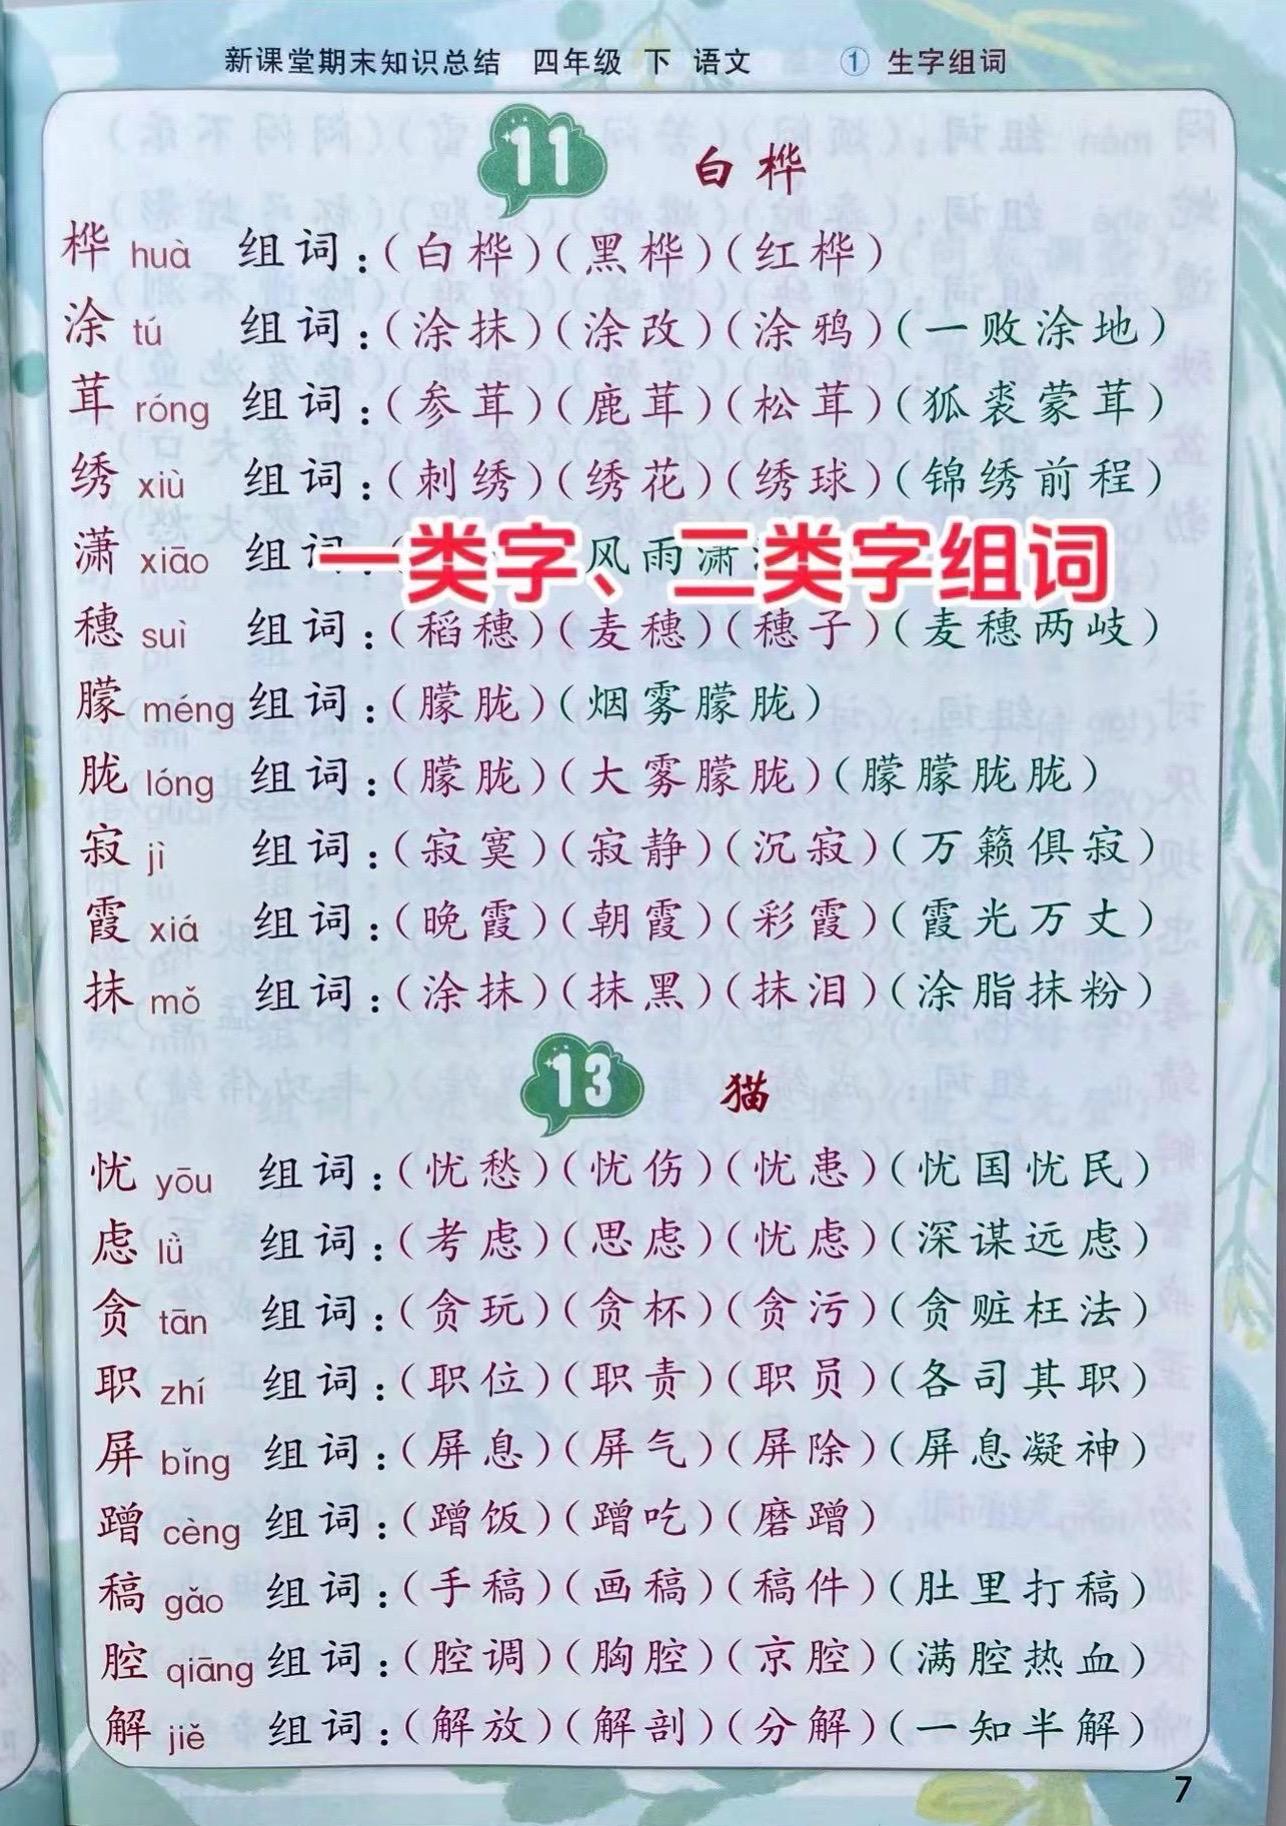 新课堂期末知识总结 四年级 下 语文 ① 生字组词
11 白桦
桦 huà 组词:(白桦)(黑桦)(红桦)
涂 tú 组词:(涂抹)(涂改)(涂鸦)(一败涂地)
茸 róng 组词:(参茸)(鹿茸)(松茸)(狐裘蒙茸)
绣 xiù 组词:(刺绣)(绣花)(绣球)(锦绣前程)
潇 xiāo 组词 风雨潇
一类字、二类字组词
穗 suì 组词:(稻穗)(麦穗)(穗子)(麦穗两岐)
朦 méng 组词:(朦胧)(烟雾朦胧)
胧 lóng 组词:(朦胧)(大雾朦胧)(朦朦胧胧)
寂 jì 组词:(寂寞)(寂静)(沉寂)(万籁俱寂)
霞 xiá 组词:(晚霞)(朝霞)(彩霞)(霞光万丈)
抹 mǒ 组词:(涂抹)(抹黑)(抹泪)(涂脂抹粉)
13 猫
忧 yōu 组词:(忧愁)(忧伤)(忧患)(忧国忧民)
虑 lǜ 组词:(考虑)(思虑)(忧虑)(深谋远虑)
贪 tān 组词:(贪玩)(贪杯)(贪污)(贪赃枉法)
职 zhí 组词:(职位)(职责)(职员)(各司其职)
屏 bǐng 组词:(屏息)(屏气)(屏除)(屏息凝神)
蹭 cèng 组词:(蹭饭)(蹭吃)(磨蹭)
稿 gǎo 组词:(手稿)(画稿)(稿件)(肚里打稿)
腔 qiāng 组词:(腔调)(胸腔)(京腔)(满腔热血)
解 jiě 组词:(解放)(解剖)(分解)(一知半解)
7